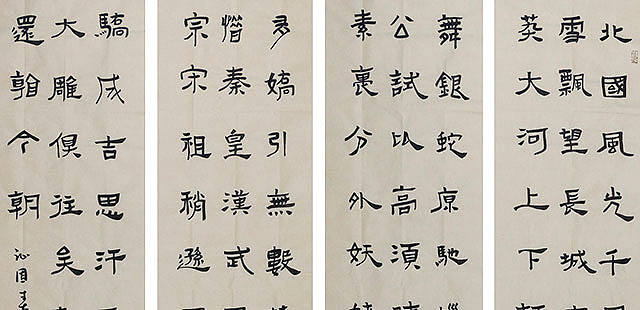 北國風光千
雪飄望長城
莽大河上下
舞銀蛇原馳
公試比高須
素裹分外妖
多嬌引無數
惜秦皇漢武
宗宋祖稍遜
驕成吉思汗
大雕俱往矣
還看今朝
沁園